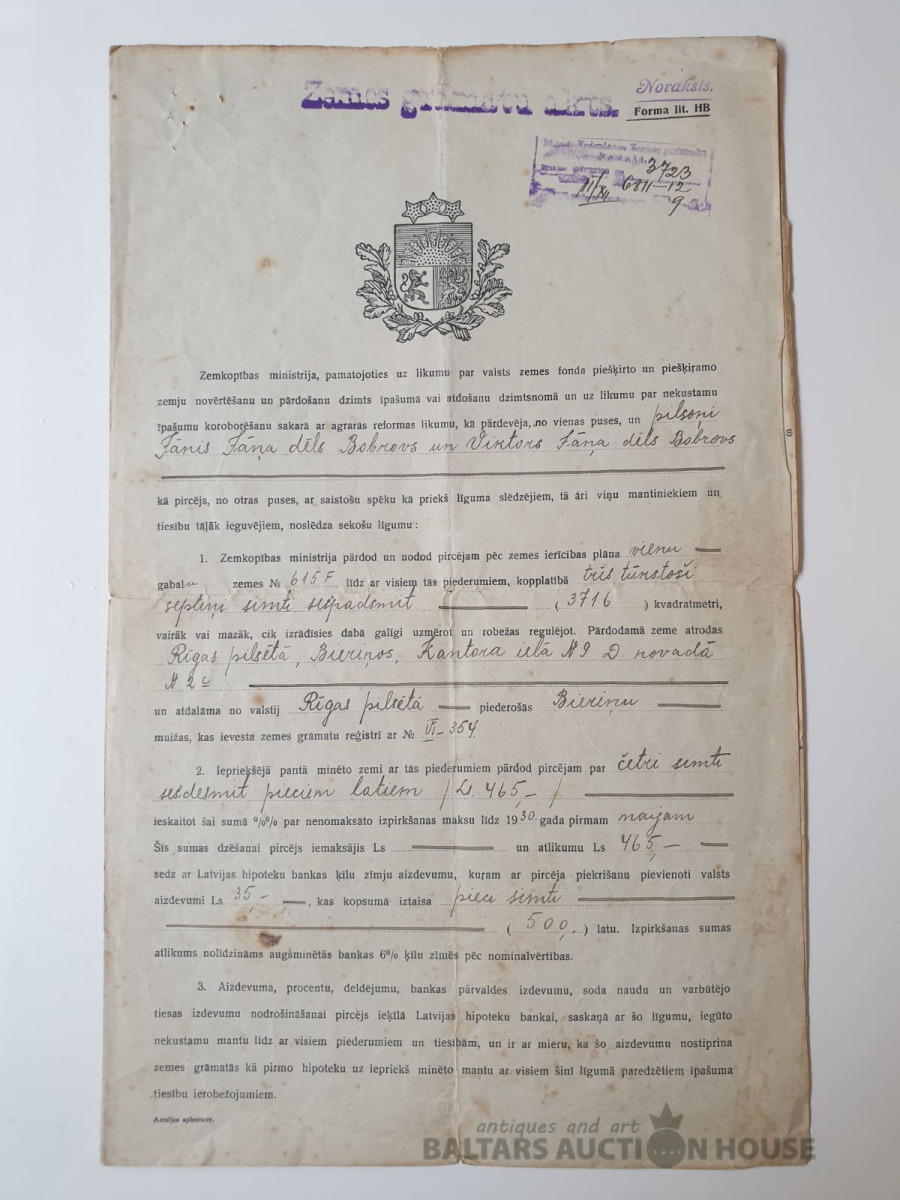 Zemes grāmatu akts.
Noraksts.
Forma lit. HB
3723
6811—12
9
Zemkopības ministrija, pamatojoties uz likumu par valsts zemes fonda piešķirto un piešķiŗamo
zemju novērtēšanu un pārdošanu dzimts īpašumā vai atdošanu dzimtsnomā un uz likumu par nekustamu
īpašumu koroborēšanu sakarā ar agrarās reformas likumu, kā pārdevēja, no vienas puses, un pilsoņi
Jānis Jāņa dēls Bobrovs un Viktors Jāņa dēls Bobrovs
kā pircējs, no otras puses, ar saistošu spēku kā priekš līguma slēdzējiem, tā āri viņu mantiniekiem un
tiesību tāļāk ieguvējiem, noslēdza sekošu līgumu:
1. Zemkopības ministrija pārdod un nodod pircējam pēc zemes ierīcības plāna vienu
gabalu zemes № 615F līdz ar visiem tās piederumiem, kopplatībā trīs tūkstoši
septiņi simti sešpadsmit (3716) kvadratmetri,
vairāk vai mazāk, cik izrādīsies dabā galīgi uzmērot un robežas regulējot. Pārdodamā zeme atrodas
Rīgas pilsētā, Bieriņos, Kantora ielā № 9 D novadā
№ 2c
un atdalāma no valstij Rīgas pilsētā piederošās Bieriņu
muižas, kas ievesta zemes grāmatu reģistrī ar № VI—354
2. Iepriekšējā pantā minēto zemi ar tās piederumiem pārdod pircējam par četri simti
sešdesmit pieciem latiem /Ls. 465,—/
ieskaitot šai sumā %% par nenomaksāto izpirkšanas maksu līdz 1930. gada pirmam maijam
Šīs sumas dzēšanai pircējs iemaksājis Ls — un atlikumu Ls 465,—
sedz ar Latvijas hipoteku bankas ķīlu zīmju aizdevumu, kuŗam ar pircēja piekrišanu pievienoti valsts
aizdevumi Ls 35,—, kas kopsumā iztaisa pieci simti
(500,—) latu. Izpirkšanas sumas
atlikums nolīdzināms augšminētās bankas 6% ķīlu zīmēs pēc nominalvērtības.
3. Aizdevuma, procentu, deldējumu, bankas pārvaldes izdevumu, soda naudu un varbūtējo
tiesas izdevumu nodrošināšanai pircējs ieķīlā Latvijas hipoteku bankai, saskaņā ar šo līgumu, iegūto
nekustamu mantu līdz ar visiem piederumiem un tiesībām, un ir ar mieru, ka šo aizdevumu nostiprina
zemes grāmatās kā pirmo hipoteku uz iepriekš minēto mantu ar visiem šinī līgumā paredzētiem īpašuma
tiesību ierobežojumiem.
Armijas spiestuve.
antiques and art
BALTARS AUCTION HOUSE